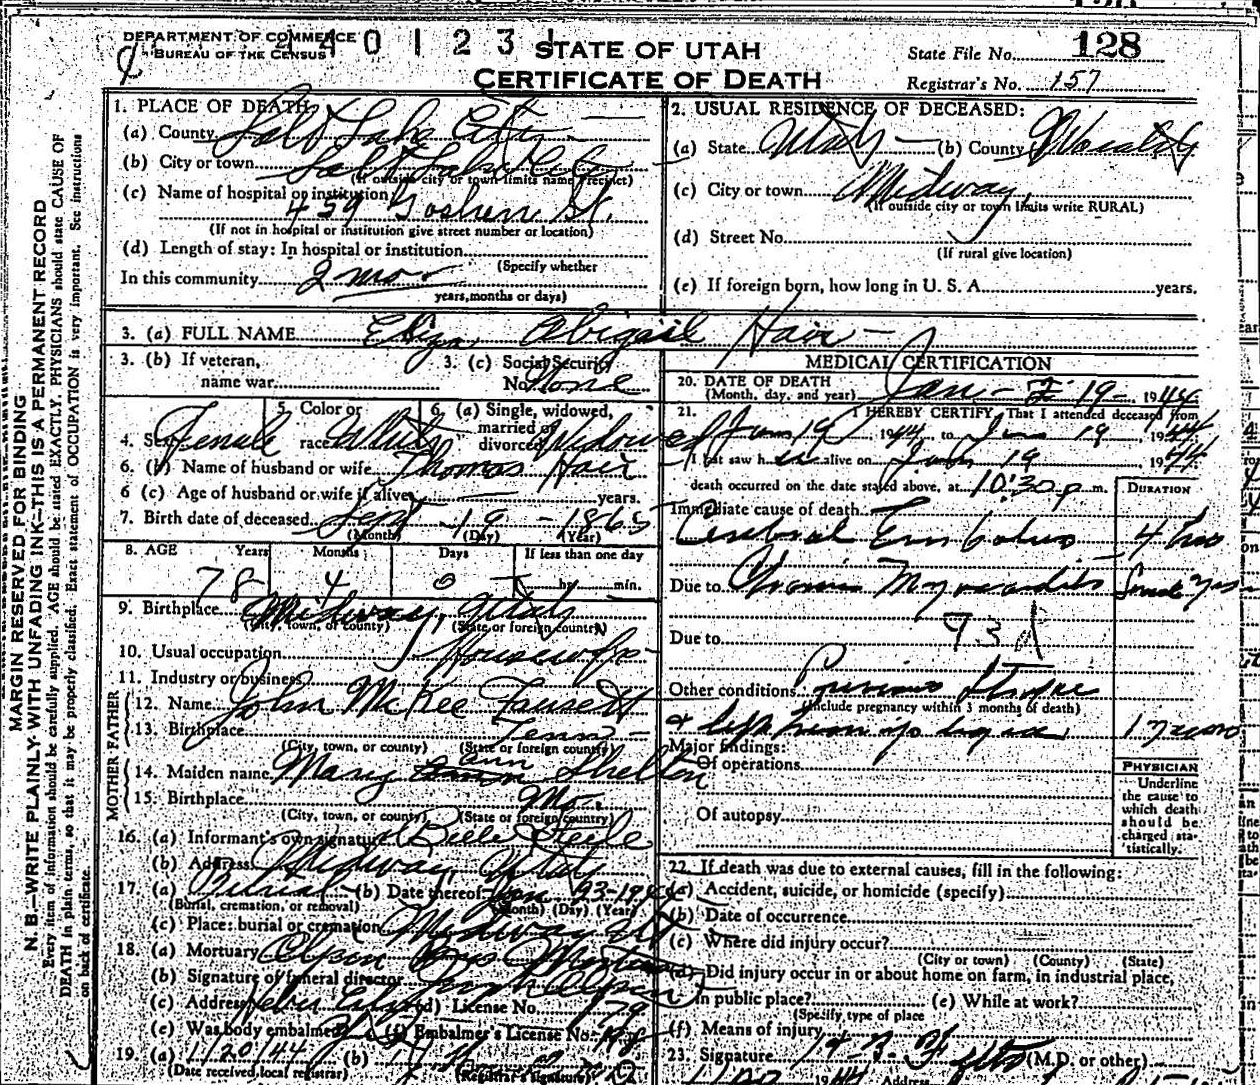 DEPARTMENT OF COMMERCE
BUREAU OF THE CENSUS
440123
STATE OF UTAH
CERTIFICATE OF DEATH
State File No. 128
Registrar's No. 157
MARGIN RESERVED FOR BINDING
N. B.—WRITE PLAINLY WITH UNFADING INK—THIS IS A PERMANENT RECORD
Every item of information should be carefully supplied. AGE should be stated EXACTLY. PHYSICIANS should state CAUSE OF
DEATH in plain terms, so that it may be properly classified. Exact statement of OCCUPATION is very important. See instructions
on back of certificate.
1. PLACE OF DEATH
(a) County Salt Lake City
(b) City or town Salt Lake City
(If outside city or town limits name precinct)
(c) Name of hospital or institution
459 Goshen St.
(If not in hospital or institution give street number or location)
(d) Length of stay: In hospital or institution
(Specify whether
In this community 2 mo.
years, months or days)
2. USUAL RESIDENCE OF DECEASED:
(a) State Utah (b) County
(c) City or town Midway
(If outside city or town limits write RURAL)
(d) Street No.
(If rural give location)
(e) If foreign born, how long in U. S. A. years.
3. (a) FULL NAME Eliza Abigail Hair
3. (b) If veteran,
name war
3. (c) Social Security
No. None
4. Sex Female
5. Color or
race White
6. (a) Single, widowed,
married or
divorced Widowed
6. (b) Name of husband or wife Thomas Hair
6 (c) Age of husband or wife if alive years.
7. Birth date of deceased Sept - 19 - 1865
(Month) (Day) (Year)
8. AGE Years Months Days If less than one day
78 4 0 hr. min.
9. Birthplace Midway, Utah
(City, town, or county) (State or foreign country)
10. Usual occupation Housewife
11. Industry or business
FATHER
12. Name John McKee Fausett
13. Birthplace Tenn
(City, town, or county) (State or foreign country)
MOTHER
14. Maiden name Mary Ann Shelton
15. Birthplace Mo.
(City, town, or county) (State or foreign country)
16. (a) Informant's own signature Steele
(b) Address Midway, Utah
17. (a) Burial (b) Date thereof Jan 23-1944
(Burial, cremation, or removal) (Month) (Day) (Year)
(c) Place: burial or cremation Midway Ut
18. (a) Mortuary Olpin Bros Mortuary
(b) Signature of funeral director
(c) Address Heber City (d) License No. 79
(e) Was body embalmed (f) Embalmer's License No.
19. (a) 1/20/44 (b)
(Date received local registrar) (Registrar's signature)
MEDICAL CERTIFICATION
20. DATE OF DEATH
(Month, day, and year) Jan - 19 - 1944
21. I HEREBY CERTIFY, That I attended deceased from
Jan 19 1944, to Jan 19, 1944
I last saw her alive on Jan 19 1944
death occurred on the date stated above, at 10:30 p. m.
DURATION
Immediate cause of death
Cerebral Embolus 4 hrs
Due to Chronic Myocarditis
93d
Due to
Other conditions Previous Stroke
(Include pregnancy within 3 months of death)
& left hemiplegia
Major findings:
Of operations
Of autopsy
PHYSICIAN
Underline
the cause to
which death
should be
charged sta-
tistically.
22. If death was due to external causes, fill in the following:
(a) Accident, suicide, or homicide (specify)
(b) Date of occurrence
(c) Where did injury occur?
(City or town) (County) (State)
(d) Did injury occur in or about home on farm, in industrial place,
in public place? (e) While at work?
(Specify type of place
(f) Means of injury
23. Signature (M.D. or other)
Address